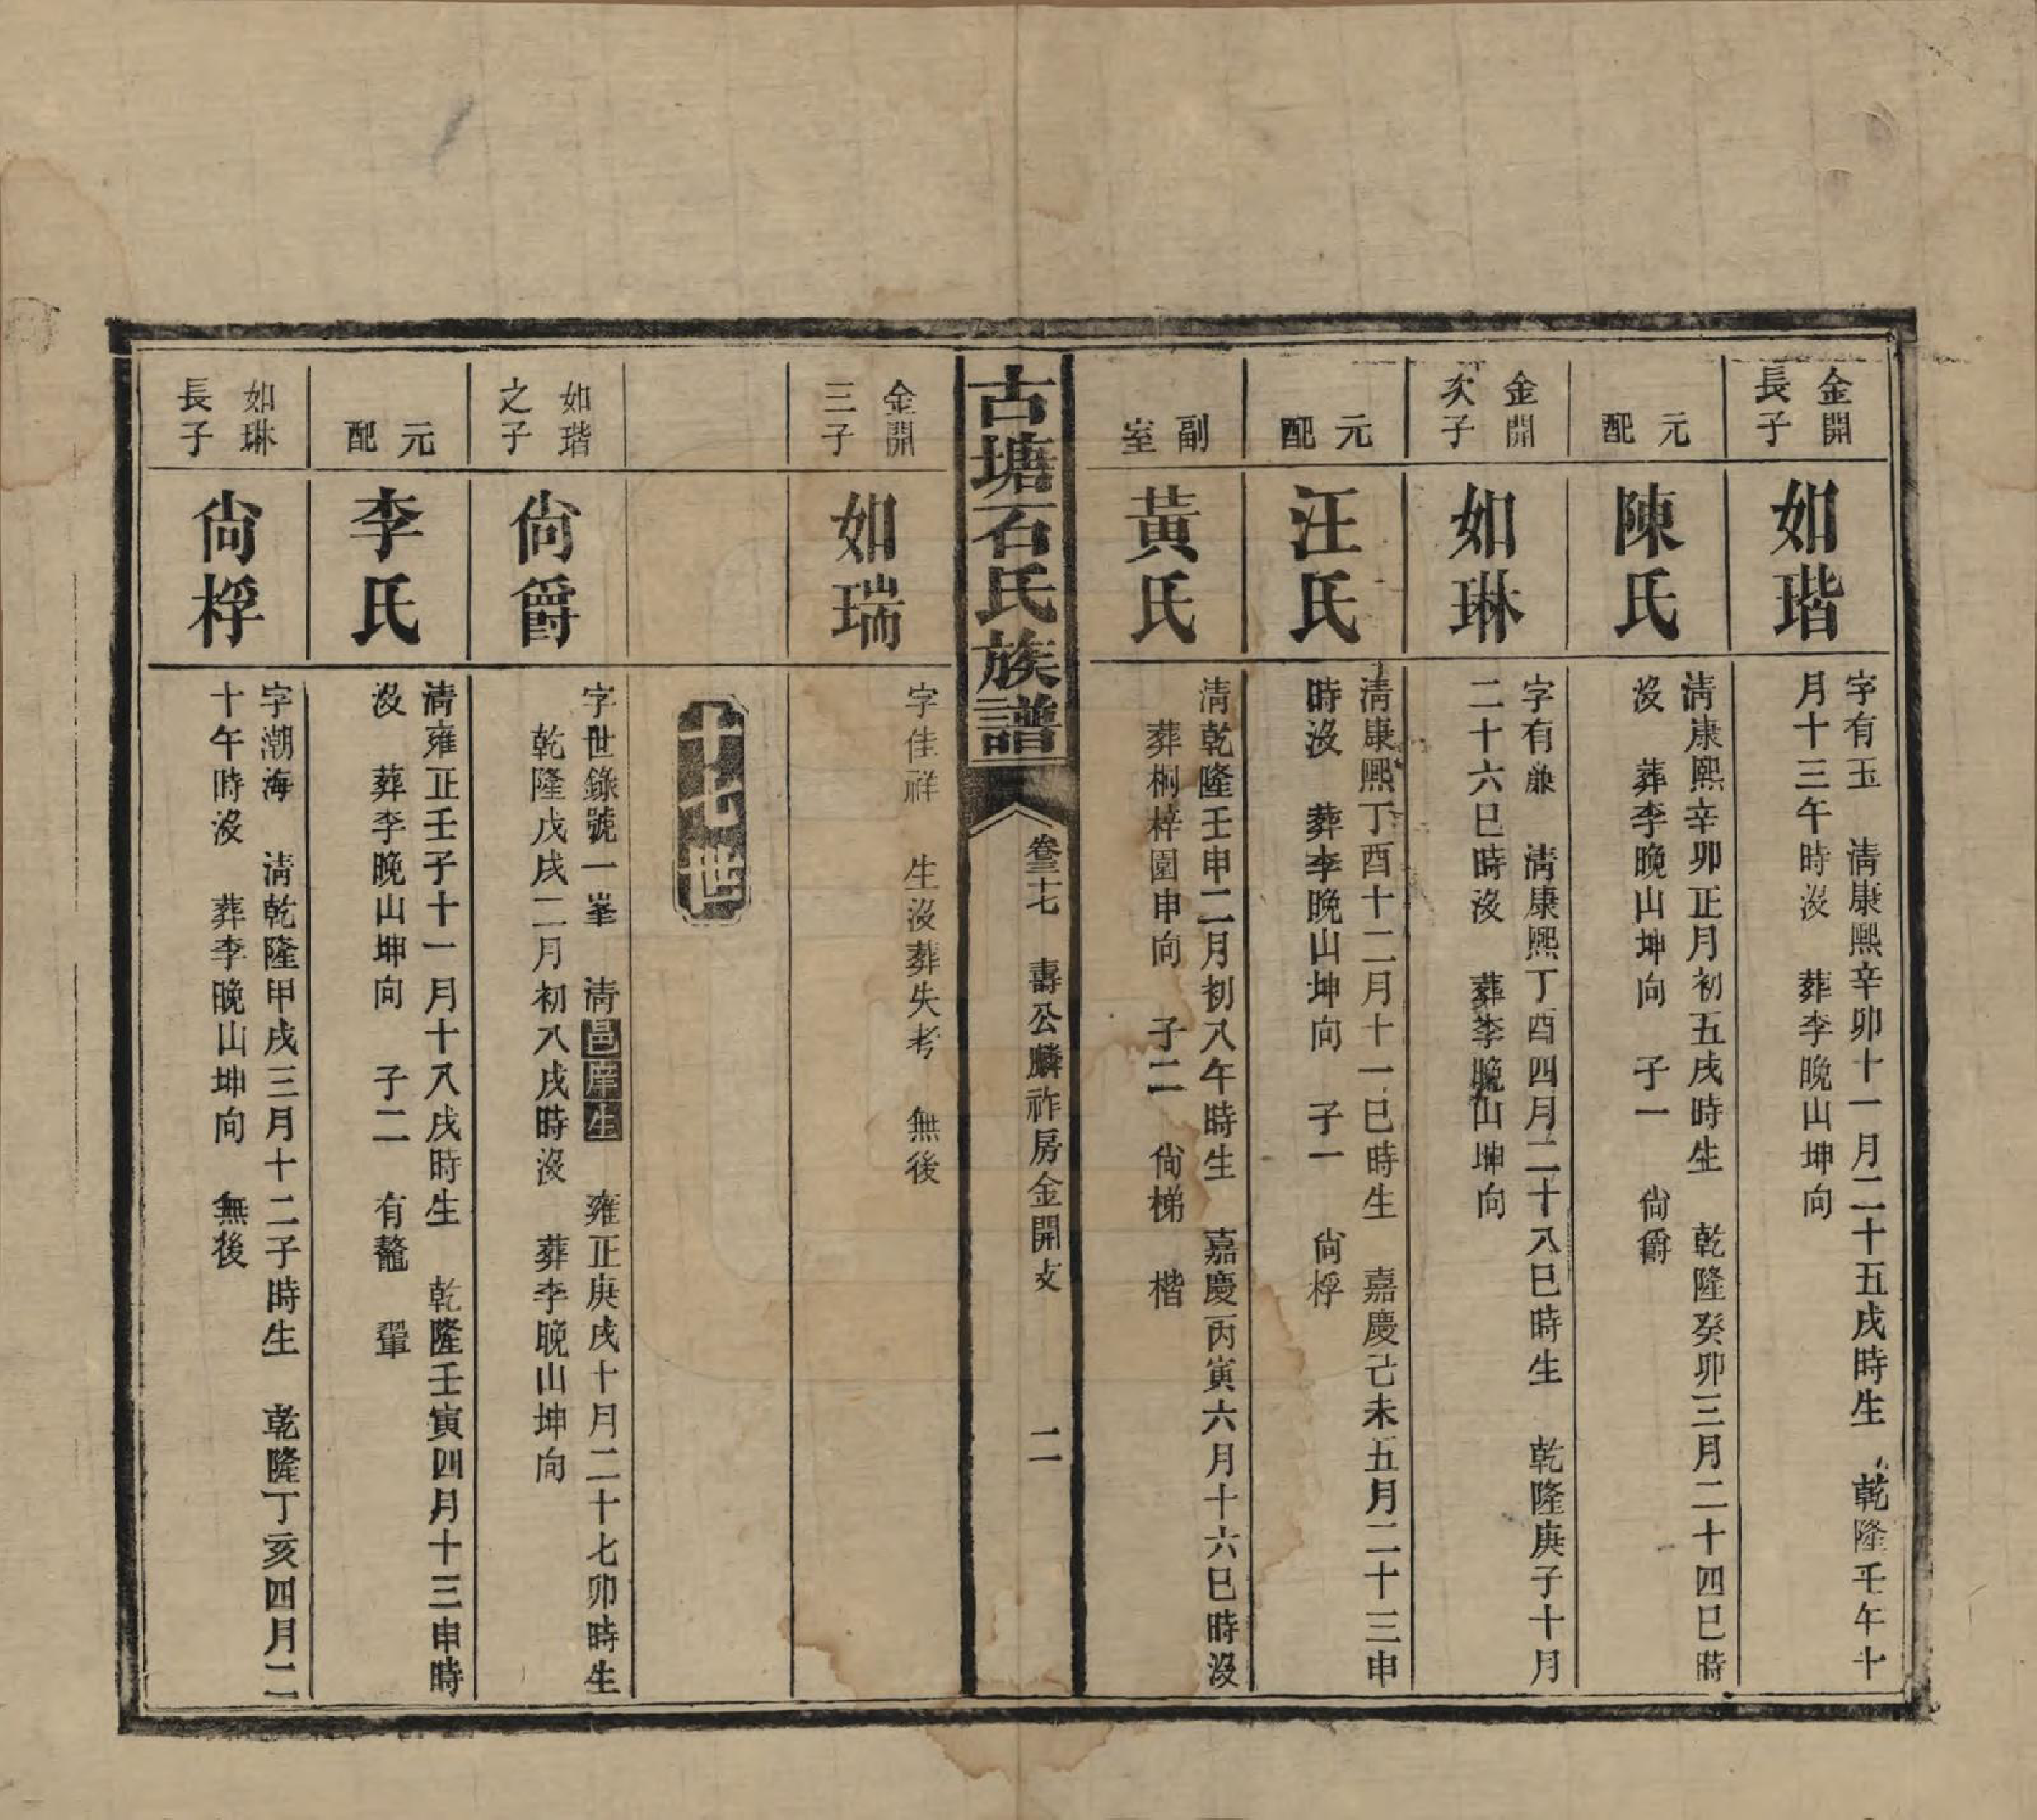 金開
長子
如瑎
字有玉　清康熙辛卯十一月二十五戌時生　乾隆壬午十
月十三午時沒　葬李晚山坤向
元
配
陳氏
清康熙辛卯正月初五戌時生　乾隆癸卯三月二十四巳時
沒　葬李晚山坤向　子一　尙爵
金開
次子
如琳
字有亷　清康熙丁酉四月二十八巳時生　乾隆庚子十月
二十六巳時沒　葬李晚山坤向
元
配
汪氏
清康熙丁酉十二月十一巳時生　嘉慶己未五月二十三申
時沒　葬李晚山坤向　子一　尙桴
副
室
黃氏
清乾隆壬申二月初八午時生　嘉慶丙寅六月十六巳時沒
葬桐梓園申向　子二　尙梯　楷
古塘石氏族譜
卷三十七　壽公麟祚房金開支　二
金開
三子
如瑞
字佳祥　生沒葬失考　無後
十七世
如瑎
之子
尙爵
字世錄號一峯　清邑庠生　雍正庚戌十月二十七卯時生
乾隆戊戌二月初八戌時沒　葬李晚山坤向
元
配
李氏
清雍正壬子十一月十八戌時生　乾隆壬寅四月十三申時
沒　葬李晚山坤向　子二　有鼇　翬
如琳
長子
尙桴
字潮海　清乾隆甲戌三月十二子時生　乾隆丁亥四月二
十午時沒　葬李晚山坤向　無後